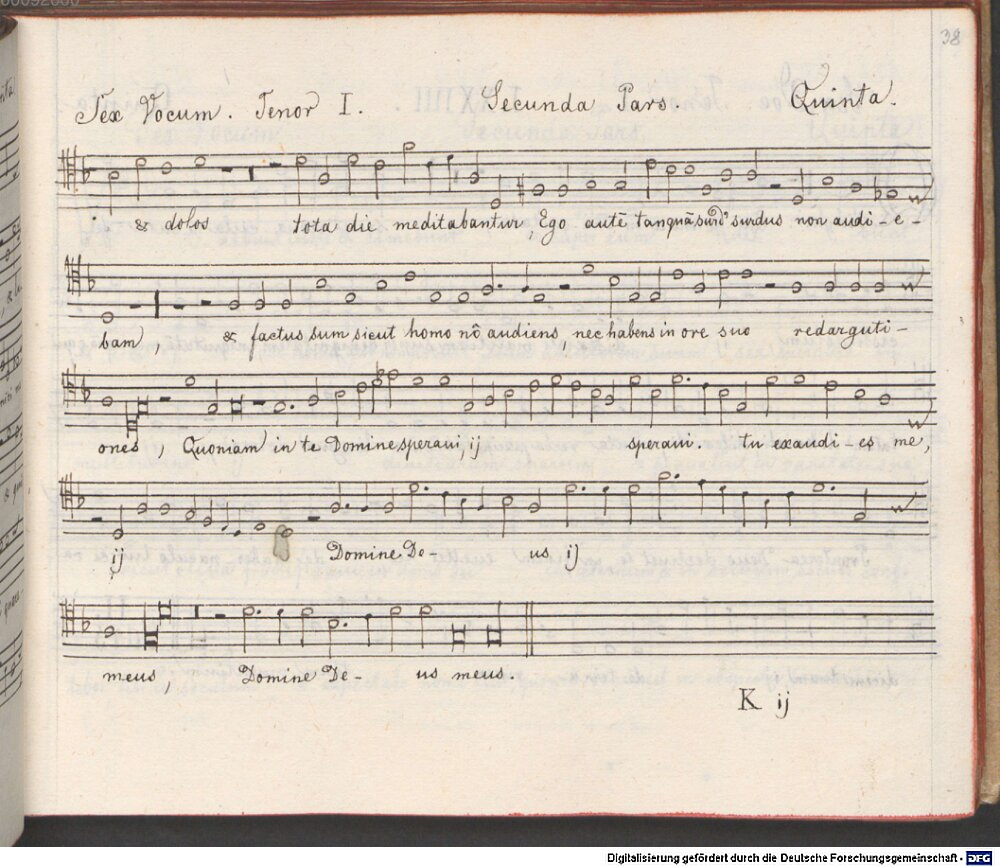 38
Sex Vocum. Tenor I. Secunda Pars. Quinta.
& dolos tota die meditabantur, Ego autē tanquā surdus non audi-e-
bam & factus sum sicut homo nō audiens, nec habens in ore suo redarguti-
ones, Quoniam in te Domine speraui, ij speraui. tu exaudi-es me,
ij Domine De- us ij
meus, Domine De- us meus.
K ij
Digitalisierung gefördert durch die Deutsche Forschungsgemeinschaft - DFG